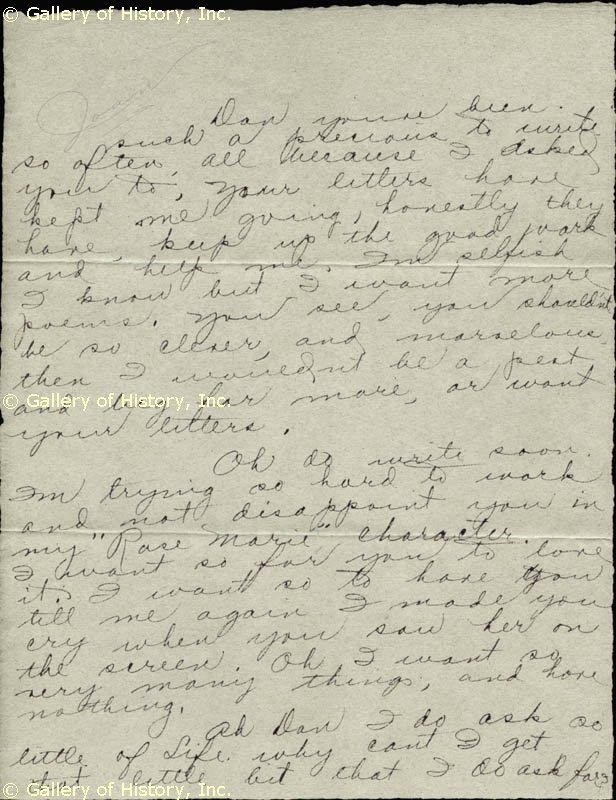 © Gallery of History, Inc.
Dan you've been
such a precious to write
so often, all because I asked
you to, your letters have
kept me going, honestly they
have, keep up the good work
and help me. I'm selfish
© Gallery of History, Inc.
I know but I want more
poems. You see, you shouldn't
be so clever, and marvelous,
then I wouldn't be a pest
and beg for more, or want
© Gallery of History, Inc.
your letters.
Oh do write soon.
I'm trying so hard to work
and not disappoint you in
my "Rose Marie" character.
I want so for you to love
it. I want so to have you
tell me again I made you
cry when you saw her on
the screen. Oh I want so
© Gallery of History, Inc.
very many things, and have
nothing.
Ah Dan I do ask so
little of Life. why cant I get
that little bit that I do ask for
© Gallery of History, Inc.